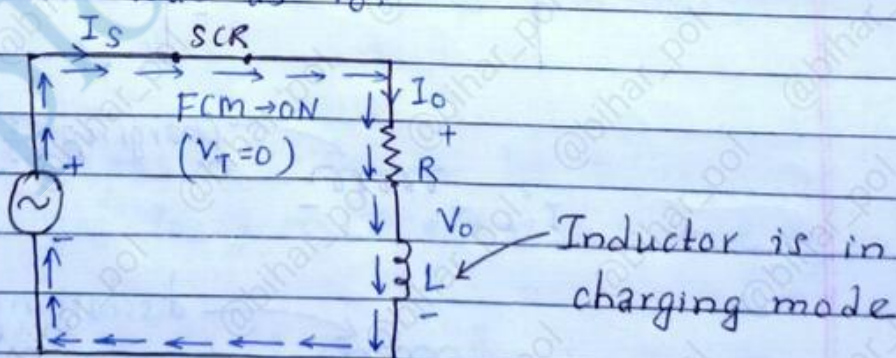 I_S SCR
FCM→ON
I_O
(V_T=0)
+
+
R
V_O
Inductor is in
L
-
-
charging mode
@bihar_pol